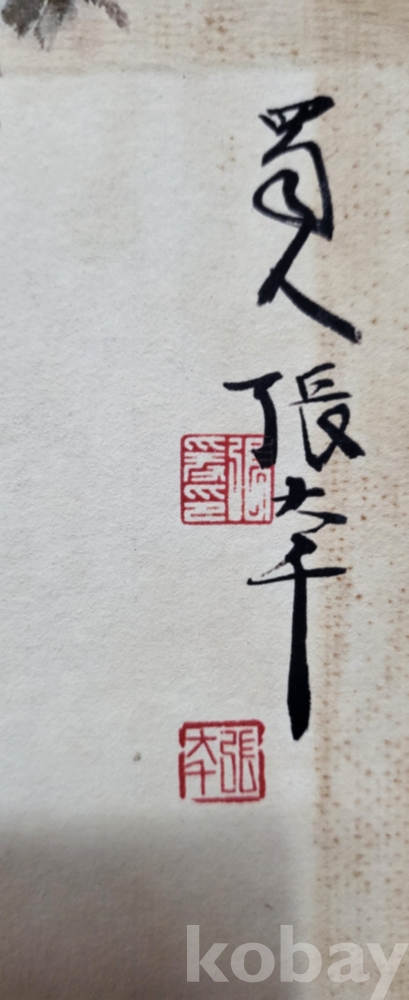 蜀人張大千
張爰印
張大千
kobay